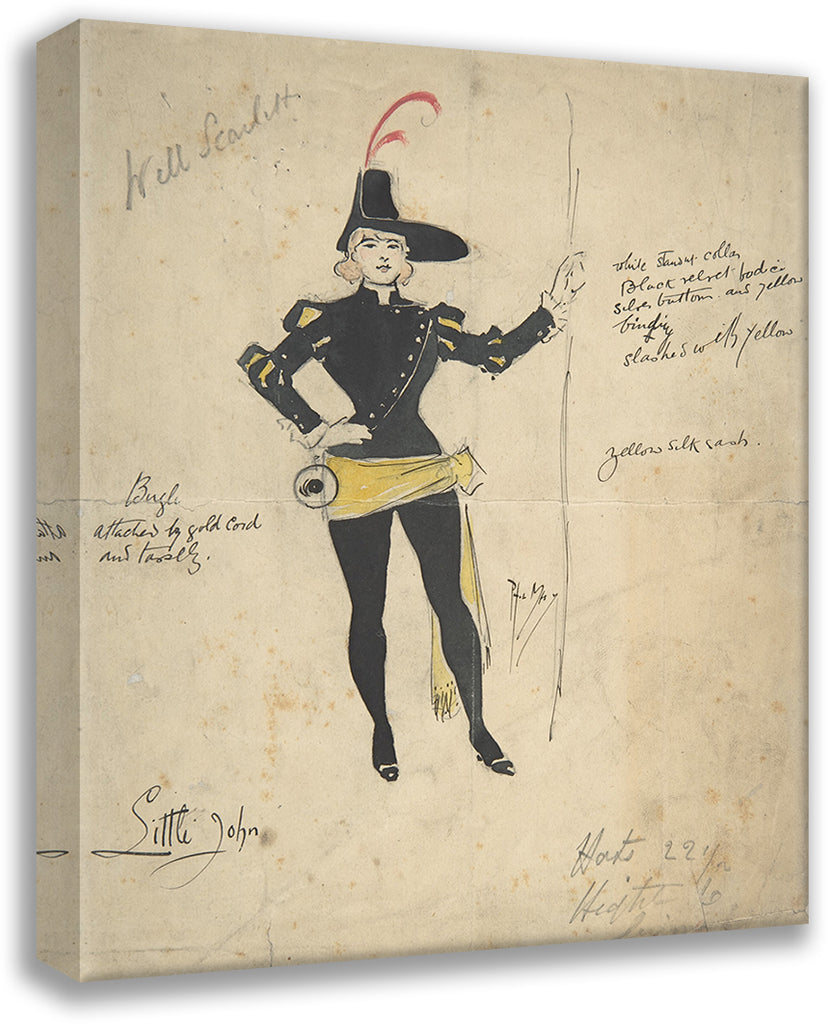 Will Scarlett
white standup collar
Black velvet bodice
silver buttons and yellow
binding
slashed with yellow
yellow silk sash.
Bugle
attached by gold cord
and tassels.
Phil May
Little John
Hats 22½
Hight